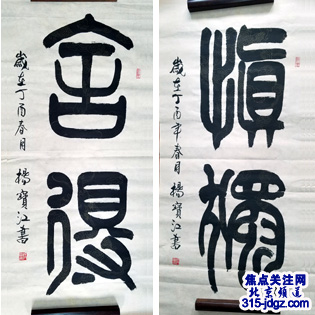 舍得
歲在丁酉春月 楊寶江書
慎獨
歲在丁酉年春月 楊寶江書
焦点关注网
北京频道
315-jdgz.com